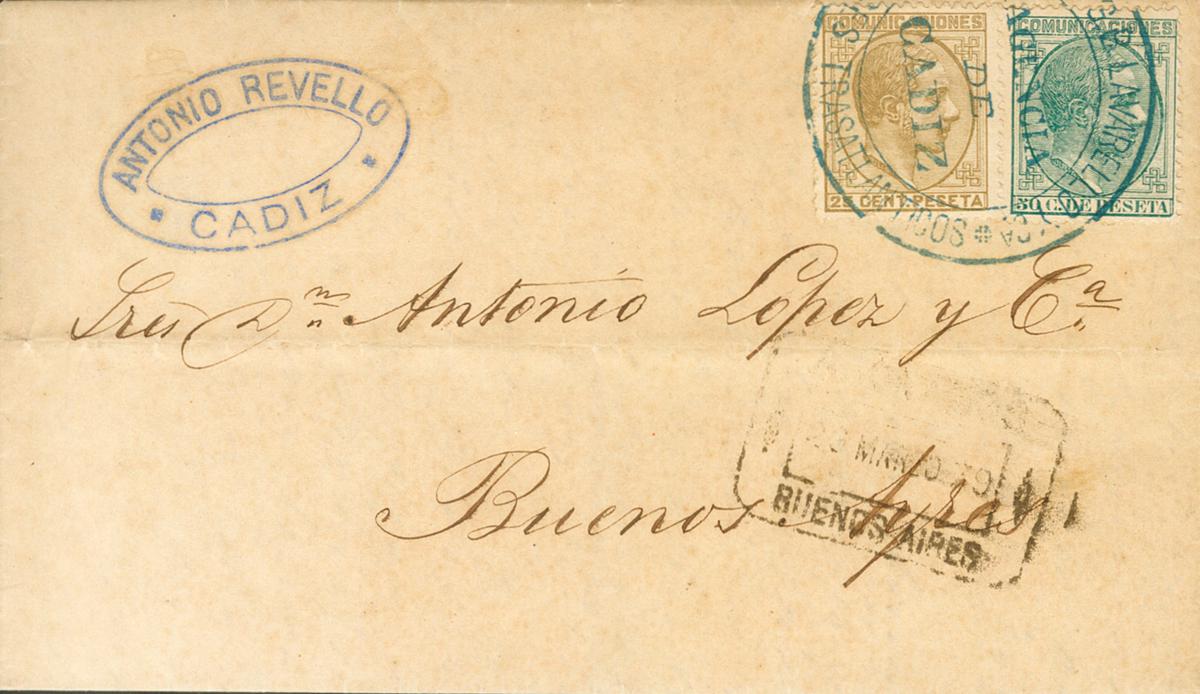 ANTONIO REVELLO
CADIZ
COMUNICACIONES
25 CENT. PESETA
COMUNICACIONES
50 C. DE PESETA
AGENCIA
DE
TRASATLANTICOS
CADIZ
Sres Dn Antonio Lopez y Ca.
Buenos Ayres
MARZO 79
BUENOS AIRES